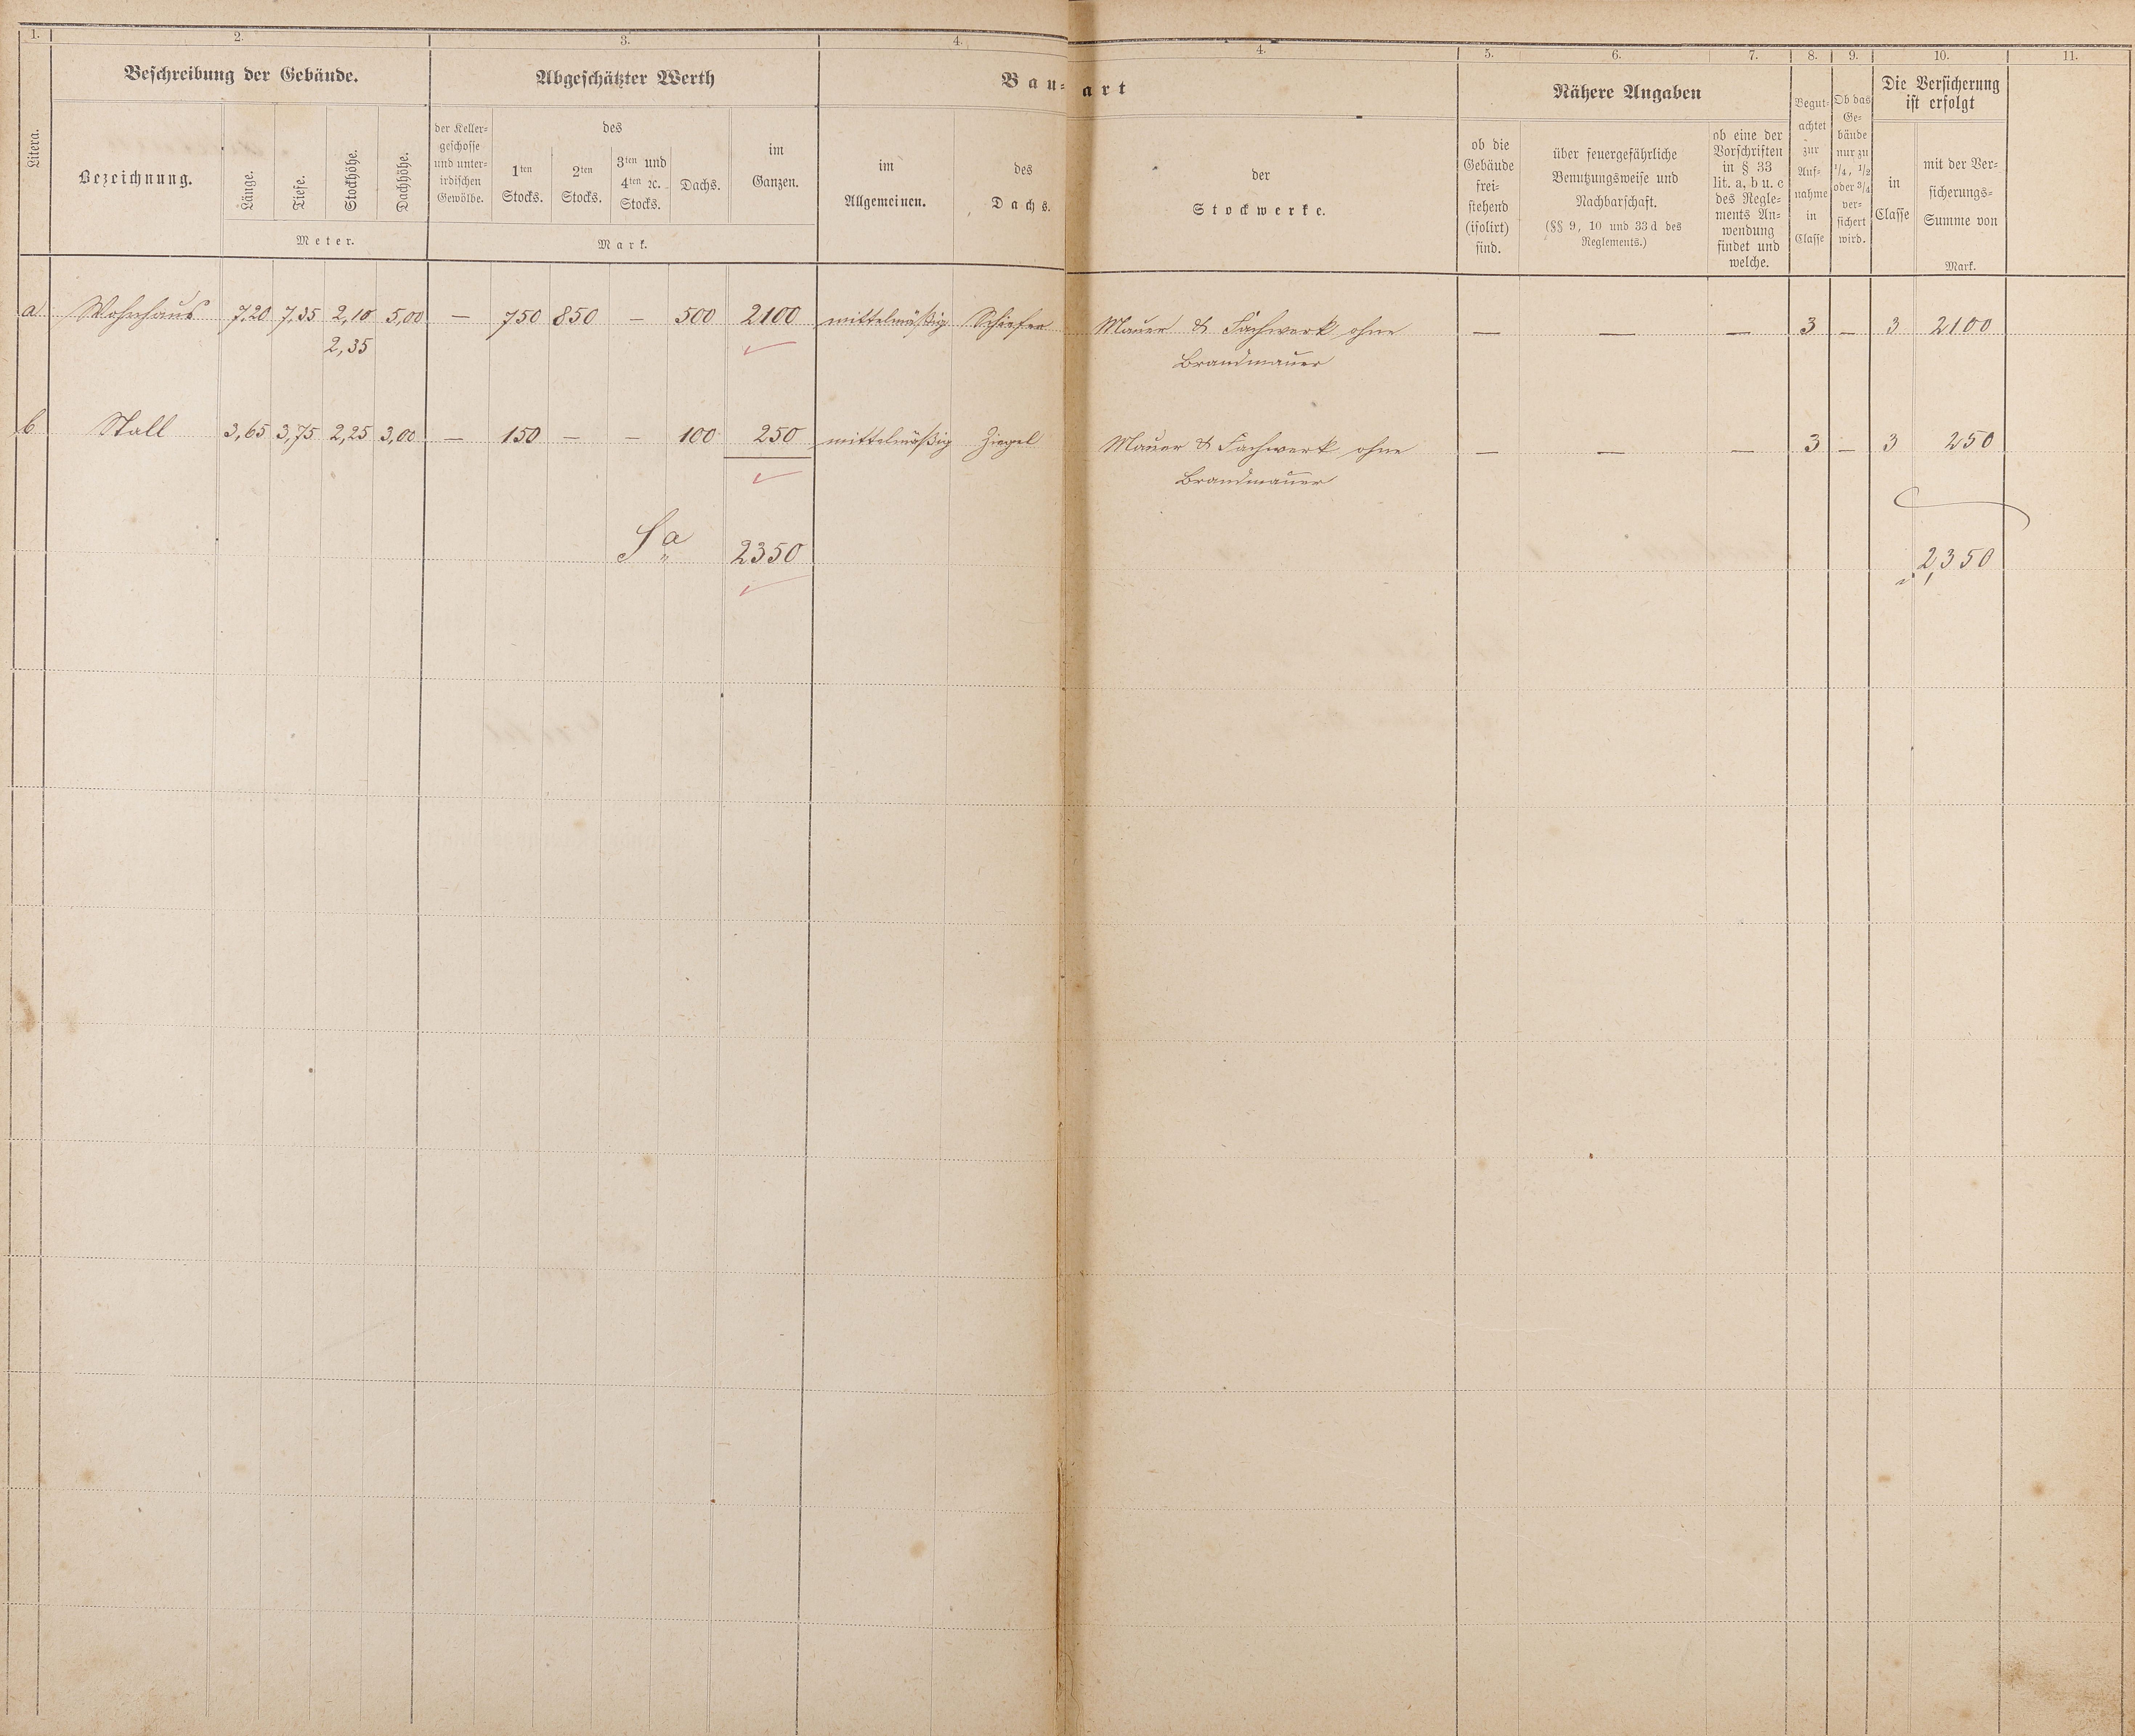 1. 2. 3. 4. 4. 5. 6. 7. 8. 9. 10. 11.
Litera.
Beschreibung der Gebäude.
Bezeichnung.
Länge.
Tiefe.
Stockhöhe.
Dachhöhe.
Meter.
Abgeschätzter Werth
der Keller-
geschosse
und unter-
irdischen
Gewölbe.
des
1ten
Stocks.
2ten
Stocks.
3ten und
4ten ꝛc.
Stocks.
Dachs.
im
Ganzen.
Mark.
Bau-art
im
Allgemeinen.
des
Dachs.
der
Stockwerke.
Nähere Angaben
ob die
Gebäude
frei-
stehend
(isolirt)
sind.
über feuergefährliche
Benutzungsweise und
Nachbarschaft.
(§§ 9, 10 und 33 d des
Reglements.)
ob eine der
Vorschriften
in § 33
lit. a, b u. c
des Regle-
ments An-
wendung
findet und
welche.
Begut-
achtet
zur
Auf-
nahme
in
Classe
Ob das
Ge-
bäude
nur zu
1/4, 1/2
oder 3/4
ver-
sichert
wird.
Die Versicherung
ist erfolgt
in
Classe
mit der Ver-
sicherungs-
Summe von
Mark.
a Wohnhaus 7,20 7,35 2,10 5,00 — 750 850 — 500 2100 mittelmäßig Schiefer Mauer & Fachwerk ohne — — — 3 — 3 2100
2,35 Brandmauer
b Stall 3,65 3,75 2,25 3,00 — 150 — — 100 250 mittelmäßig Ziegel Mauer & Fachwerk ohne — — — 3 — 3 250
Brandmauer
Sa 2350 2,350